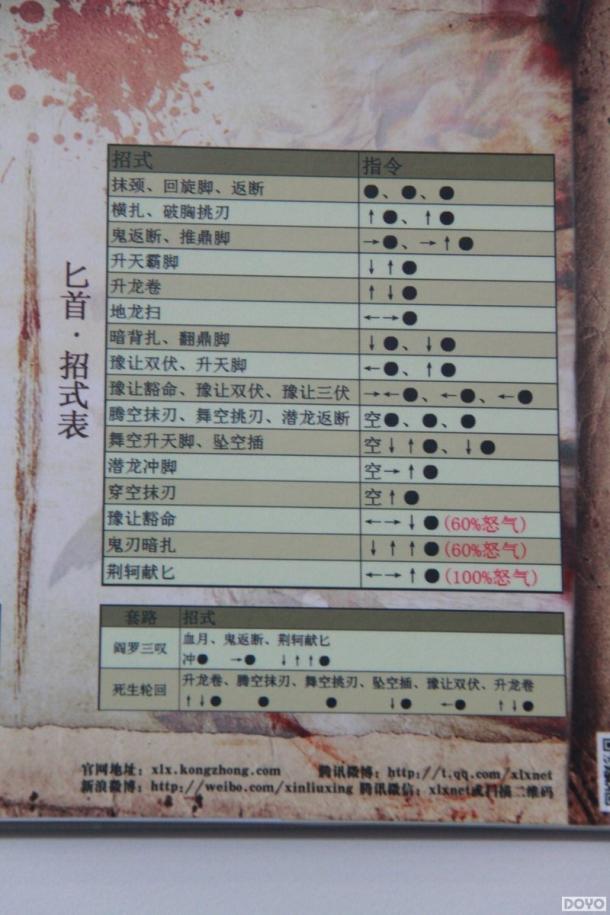 匕首·招式表
招式 指令
抹颈、回旋脚、返断 ●、●、●
横扎、破胸挑刃 ↑●、↑●
鬼返断、推鼎脚 →●、→↑●
升天霸脚 ↓↑●
升龙卷 ↑↓●
地龙扫 ←→●
暗背扎、翻鼎脚 ↓●、↓●
豫让双伏、升天脚 ←●、↑●
豫让豁命、豫让双伏、豫让三伏 →←●、←●、←●
腾空抹刃、舞空挑刃、潜龙返断 空●、●、●
舞空升天脚、坠空插 空↓↑●、↓●
潜龙冲脚 空→↑●
穿空抹刃 空↑●
豫让豁命 ←→↓●(60%怒气)
鬼刃暗扎 ↓↑↑●(60%怒气)
荆轲献匕 ←→↑●(100%怒气)
套路 招式
阎罗三叹 血月、鬼返断、荆轲献匕
冲● →● ↓↑↑●
死生轮回 升龙卷、腾空抹刃、舞空挑刃、坠空插、豫让双伏、升龙卷
↑↓● ● ● ↓● ←● ↑↓●
官网地址：xlx.kongzhong.com 腾讯微博：http://t.qq.com/xlxnet
新浪微博：http://weibo.com/xinliuxing 腾讯微信：xlxnet或扫描二维码
DOYO